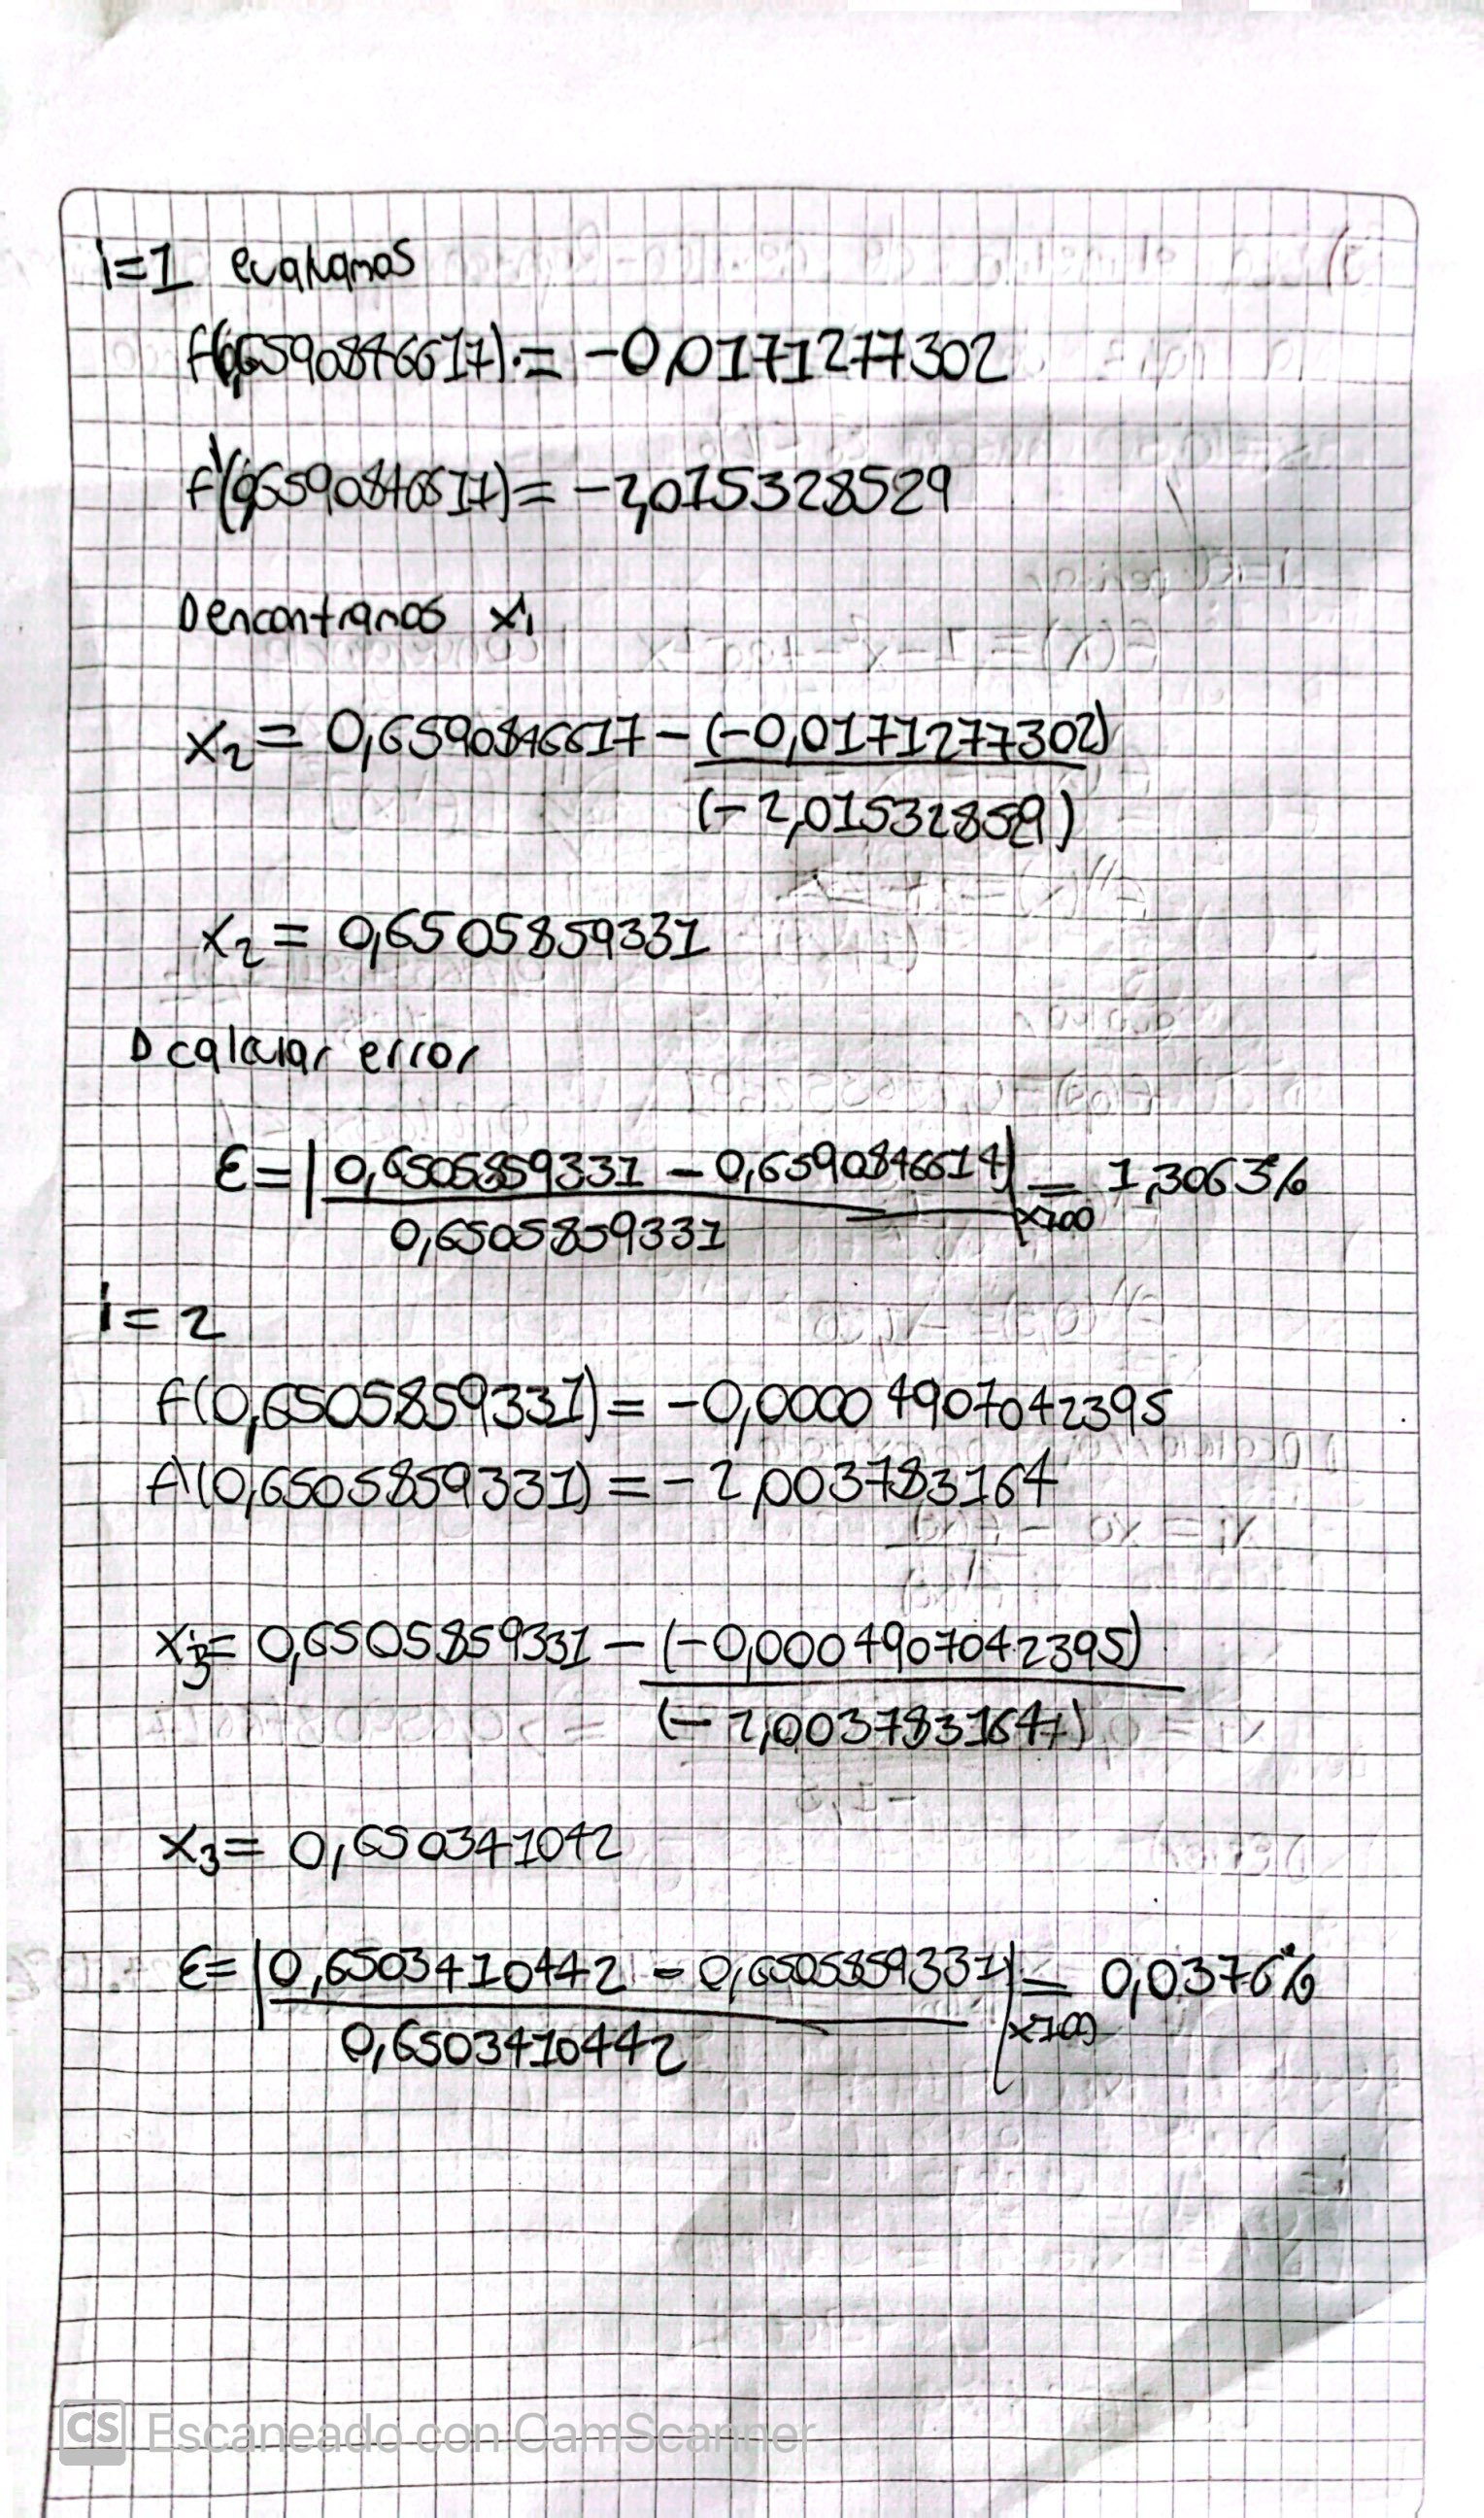 i=1 evaluamos
f(0,6590846617) = -0,0171277302
f'(0,6590846617) = -2,015328529
D encontramos x1
x2 = 0,6590846617 - (-0,0171277302)
(-2,01532859)
x2 = 0,6505859331
D calcular error
ε = | 0,6505859331 - 0,6590846617 | = 1,3063%
0,6505859331 x100
i = 2
f(0,6505859331) = -0,00004907042395
f'(0,6505859331) = -2,003783164
x3 = 0,6505859331 - (-0,0004907042395)
(-2,0037831647)
x3 = 0,650341042
ε = | 0,6503410442 - 0,6505859331 | = 0,0376%
0,6503410442 x100
CS Escaneado con CamScanner